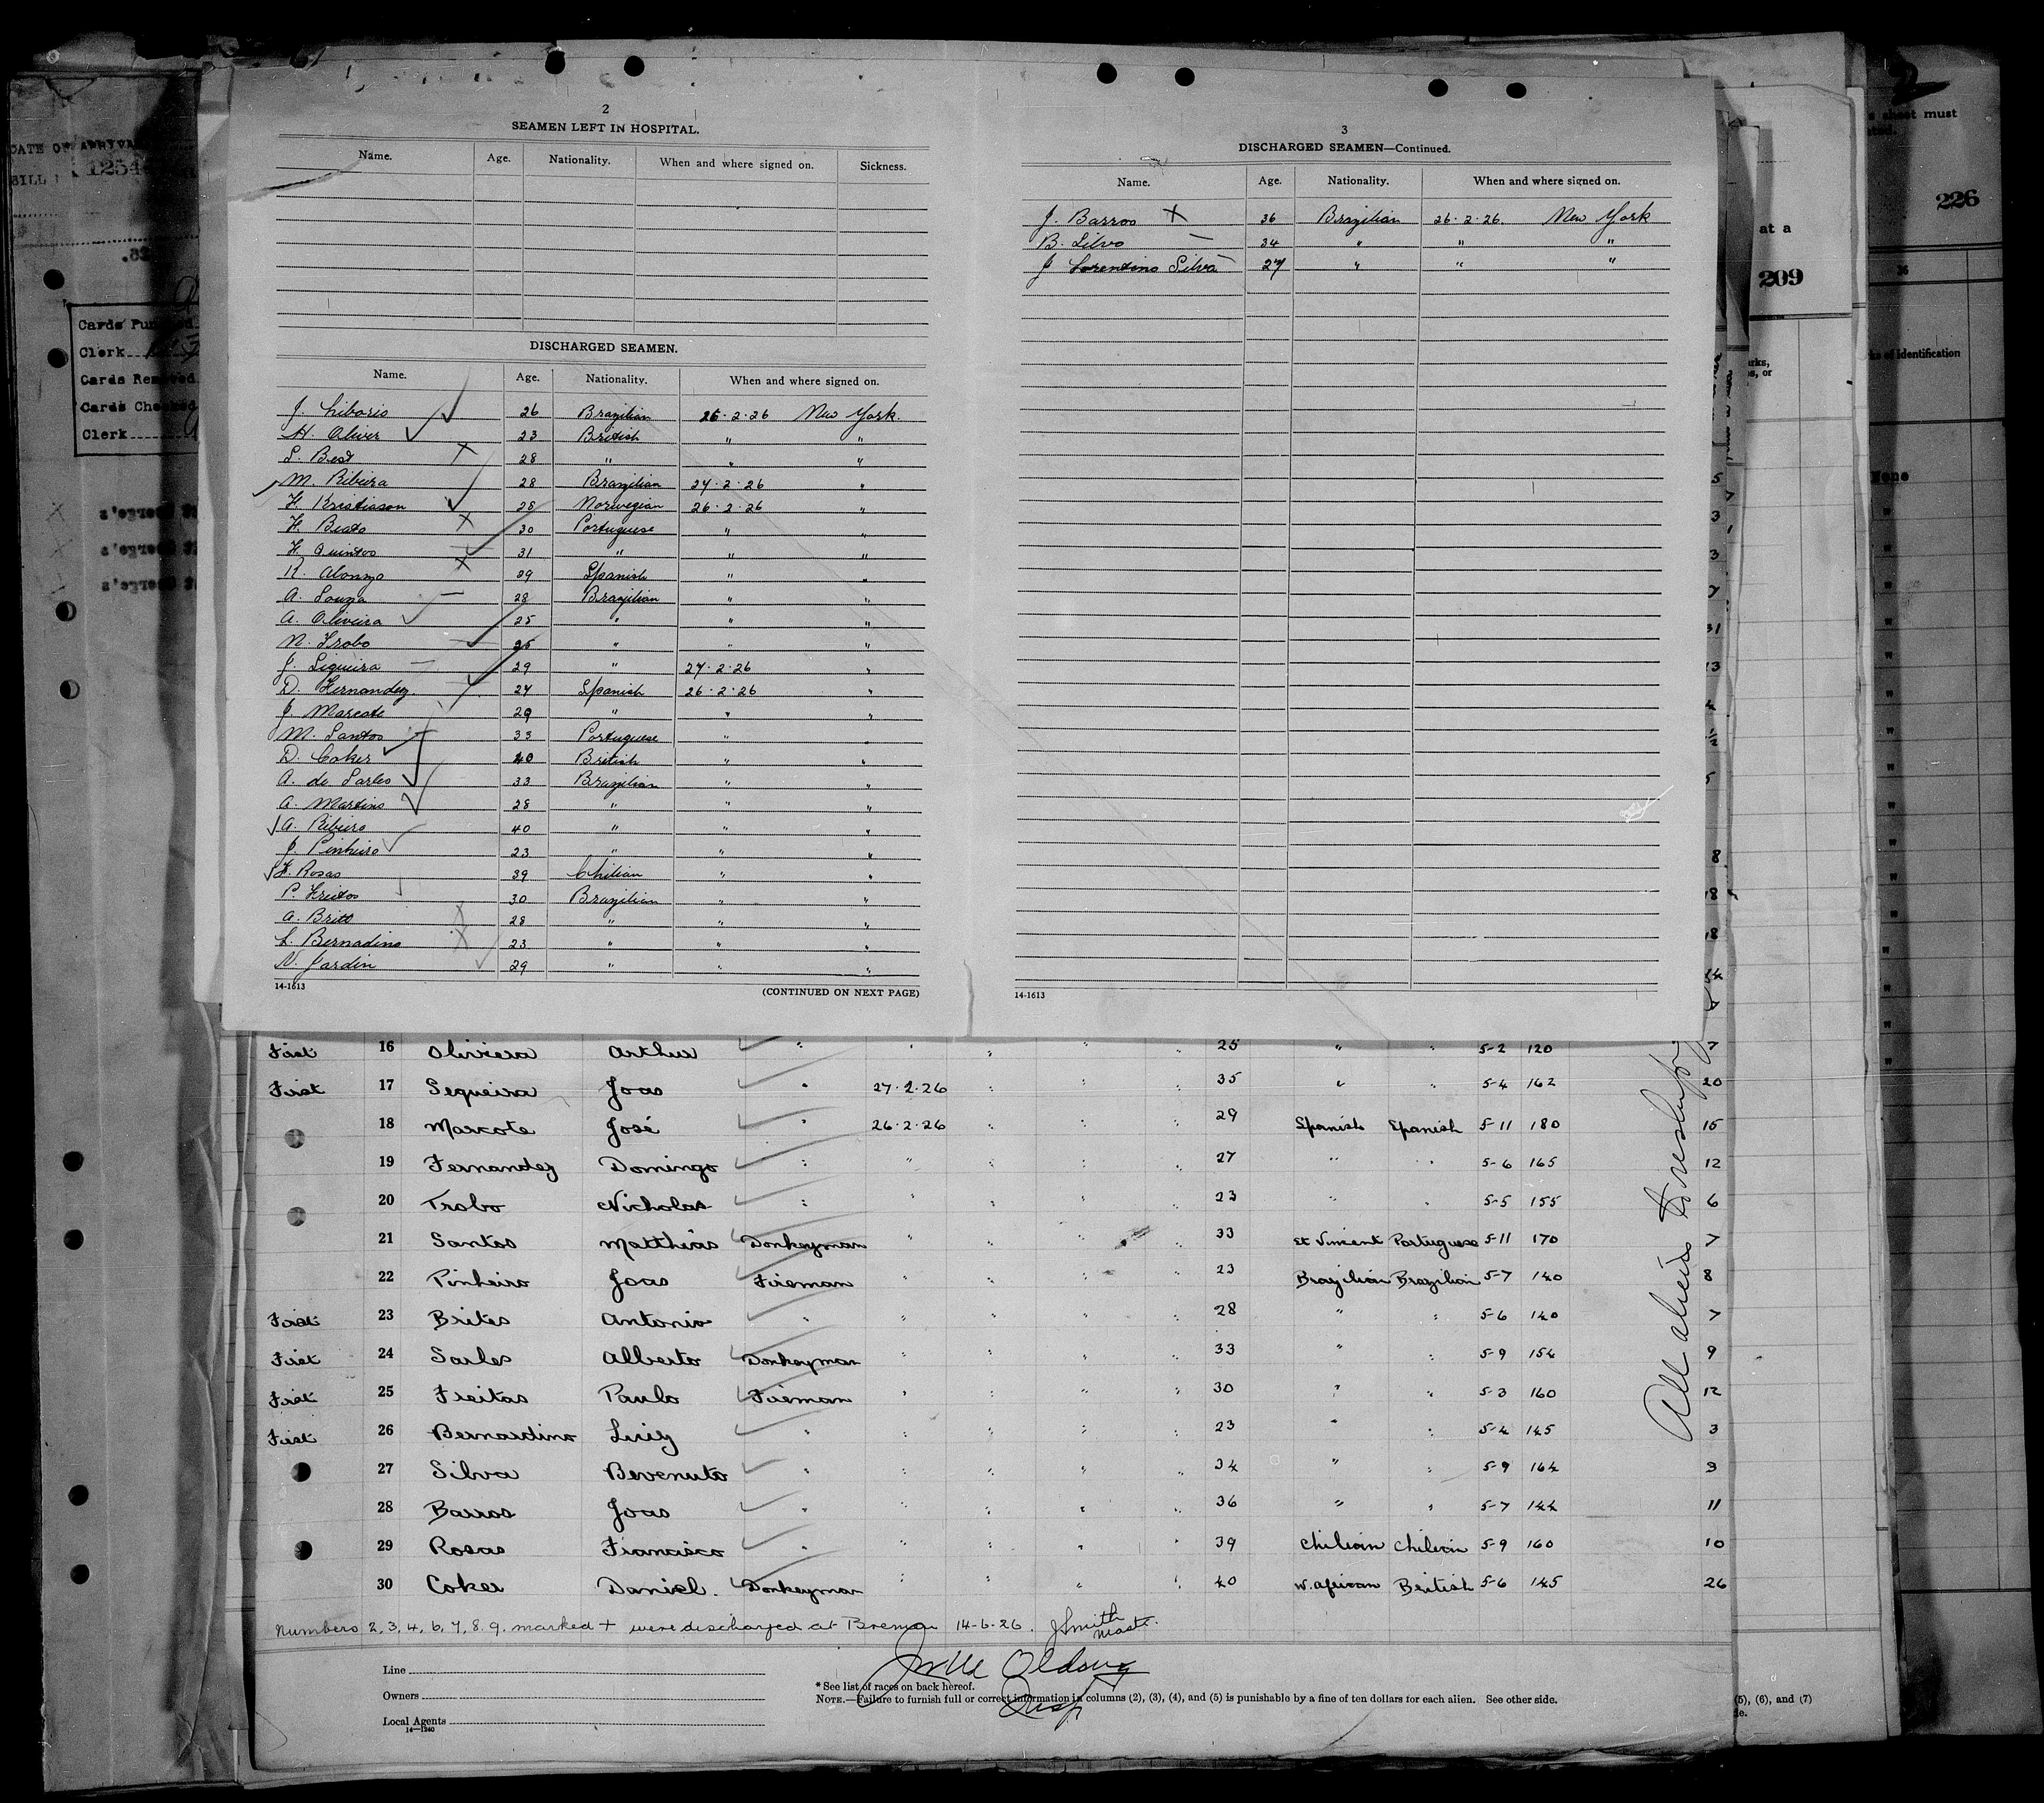 2
SEAMEN LEFT IN HOSPITAL.
Name. Age. Nationality. When and where signed on. Sickness.
DISCHARGED SEAMEN.
Name. Age. Nationality. When and where signed on.
J. Liborio 26 Brazilian 26·2·26 New York.
H. Oliver 23 British " "
S. Best 28 " " "
M. Ribeira 28 Brazilian 27·2·26 "
H. Kristiason 28 Norwegian 26·2·26 "
H. Beato 30 Portuguese " "
F. Quintos 31 " " "
R. Alonzo 39 Spanish " "
A. Souza 28 Brazilian " "
A. Oliveira 25 " " "
N. Trobo 25 " " "
J. Siqueira 29 " 27·2·26 "
D. Fernandez 27 Spanish 26·2·26 "
J. Marcote 29 " " "
M. Santos 33 Portuguese " "
D. Coker 40 British " "
A. de Sarles 33 Brazilian " "
A. Martins 28 " " "
A. Ribeiro 40 " " "
J. Pinheiro 23 " " "
F. Rosas 39 Chilian " "
P. Freitos 30 Brazilian " "
A. Brito 28 " " "
L. Bernadino 23 " " "
N. Jardin 29 " " "
14-1613 (CONTINUED ON NEXT PAGE)
3
DISCHARGED SEAMEN—Continued.
Name. Age. Nationality. When and where signed on.
J. Barros 36 Brazilian 26·2·26. New York
B. Silvo 34 " " "
J Lorentino Silva 27 " " "
14-1613
First 16 Oliviera Arthur " " " " " 25 " " 5-2 120 7
First 17 Sequeira Joao " 27·2·26 " " " 35 " " 5-4 162 20
18 Marcote José " 26·2·26 " " " 29 Spanish Spanish 5-11 180 15
19 Fernandez Domingo " " " " " 27 " " 5-6 165 12
20 Trobo Nicholas " " " " " 23 " " 5-5 155 6
21 Santos Matthias Donkeyman " " " " 33 St Vincent Portuguese 5-11 170 7
22 Pinheiro Joao Fireman " " " " 23 Brazilian Brazilian 5-7 140 8
First 23 Brites Antonio " " " " " 28 " " 5-6 140 7
First 24 Sarles Alberto Donkeyman " " " " 33 " " 5-9 154 9
First 25 Freitas Paulo Fireman " " " " 30 " " 5-3 160 12
First 26 Bernardino Luiz " " " " " 23 " " 5-4 145 3
27 Silva Bevenuto " " " " " 34 " " 5-9 164 3
28 Barros Joao " " " " " 36 " " 5-7 144 11
29 Rosas Francisco " " " " " 39 Chilian Chilian 5-9 160 10
30 Coker Daniel. Donkeyman " " " " 40 W. African British 5-6 145 26
Numbers 2, 3, 4, 6, 7, 8. 9. marked + were discharged at Bremen 14-6-26. J Smith Master.
Line
Owners
Local Agents
14—1240
* See list of races on back hereof.
NOTE.—Failure to furnish full or correct information in columns (2), (3), (4), and (5) is punishable by a fine of ten dollars for each alien. See other side.
All aliens to reship
DATE OF
BILL
1254
Cards Punched
Clerk
Cards Removed
Cards Checked
Clerk
at a
209
226
sheet must
marks of identification
None
(5), (6), and (7)